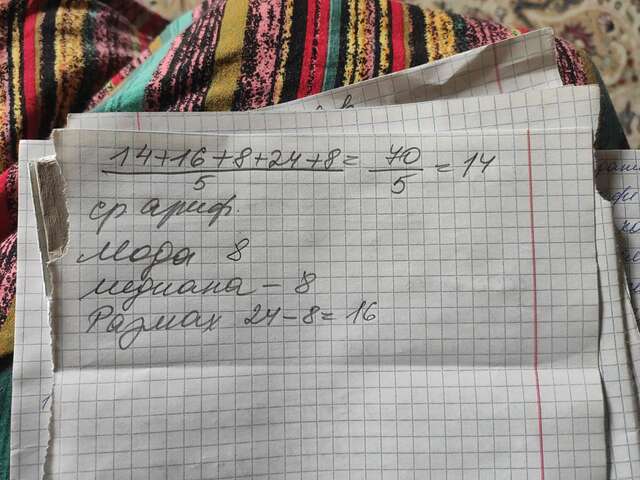 14+16+8+24+8 = 70 = 14
5 5
ср ариф.
Мода 8
медиана - 8
Размах 24-8=16